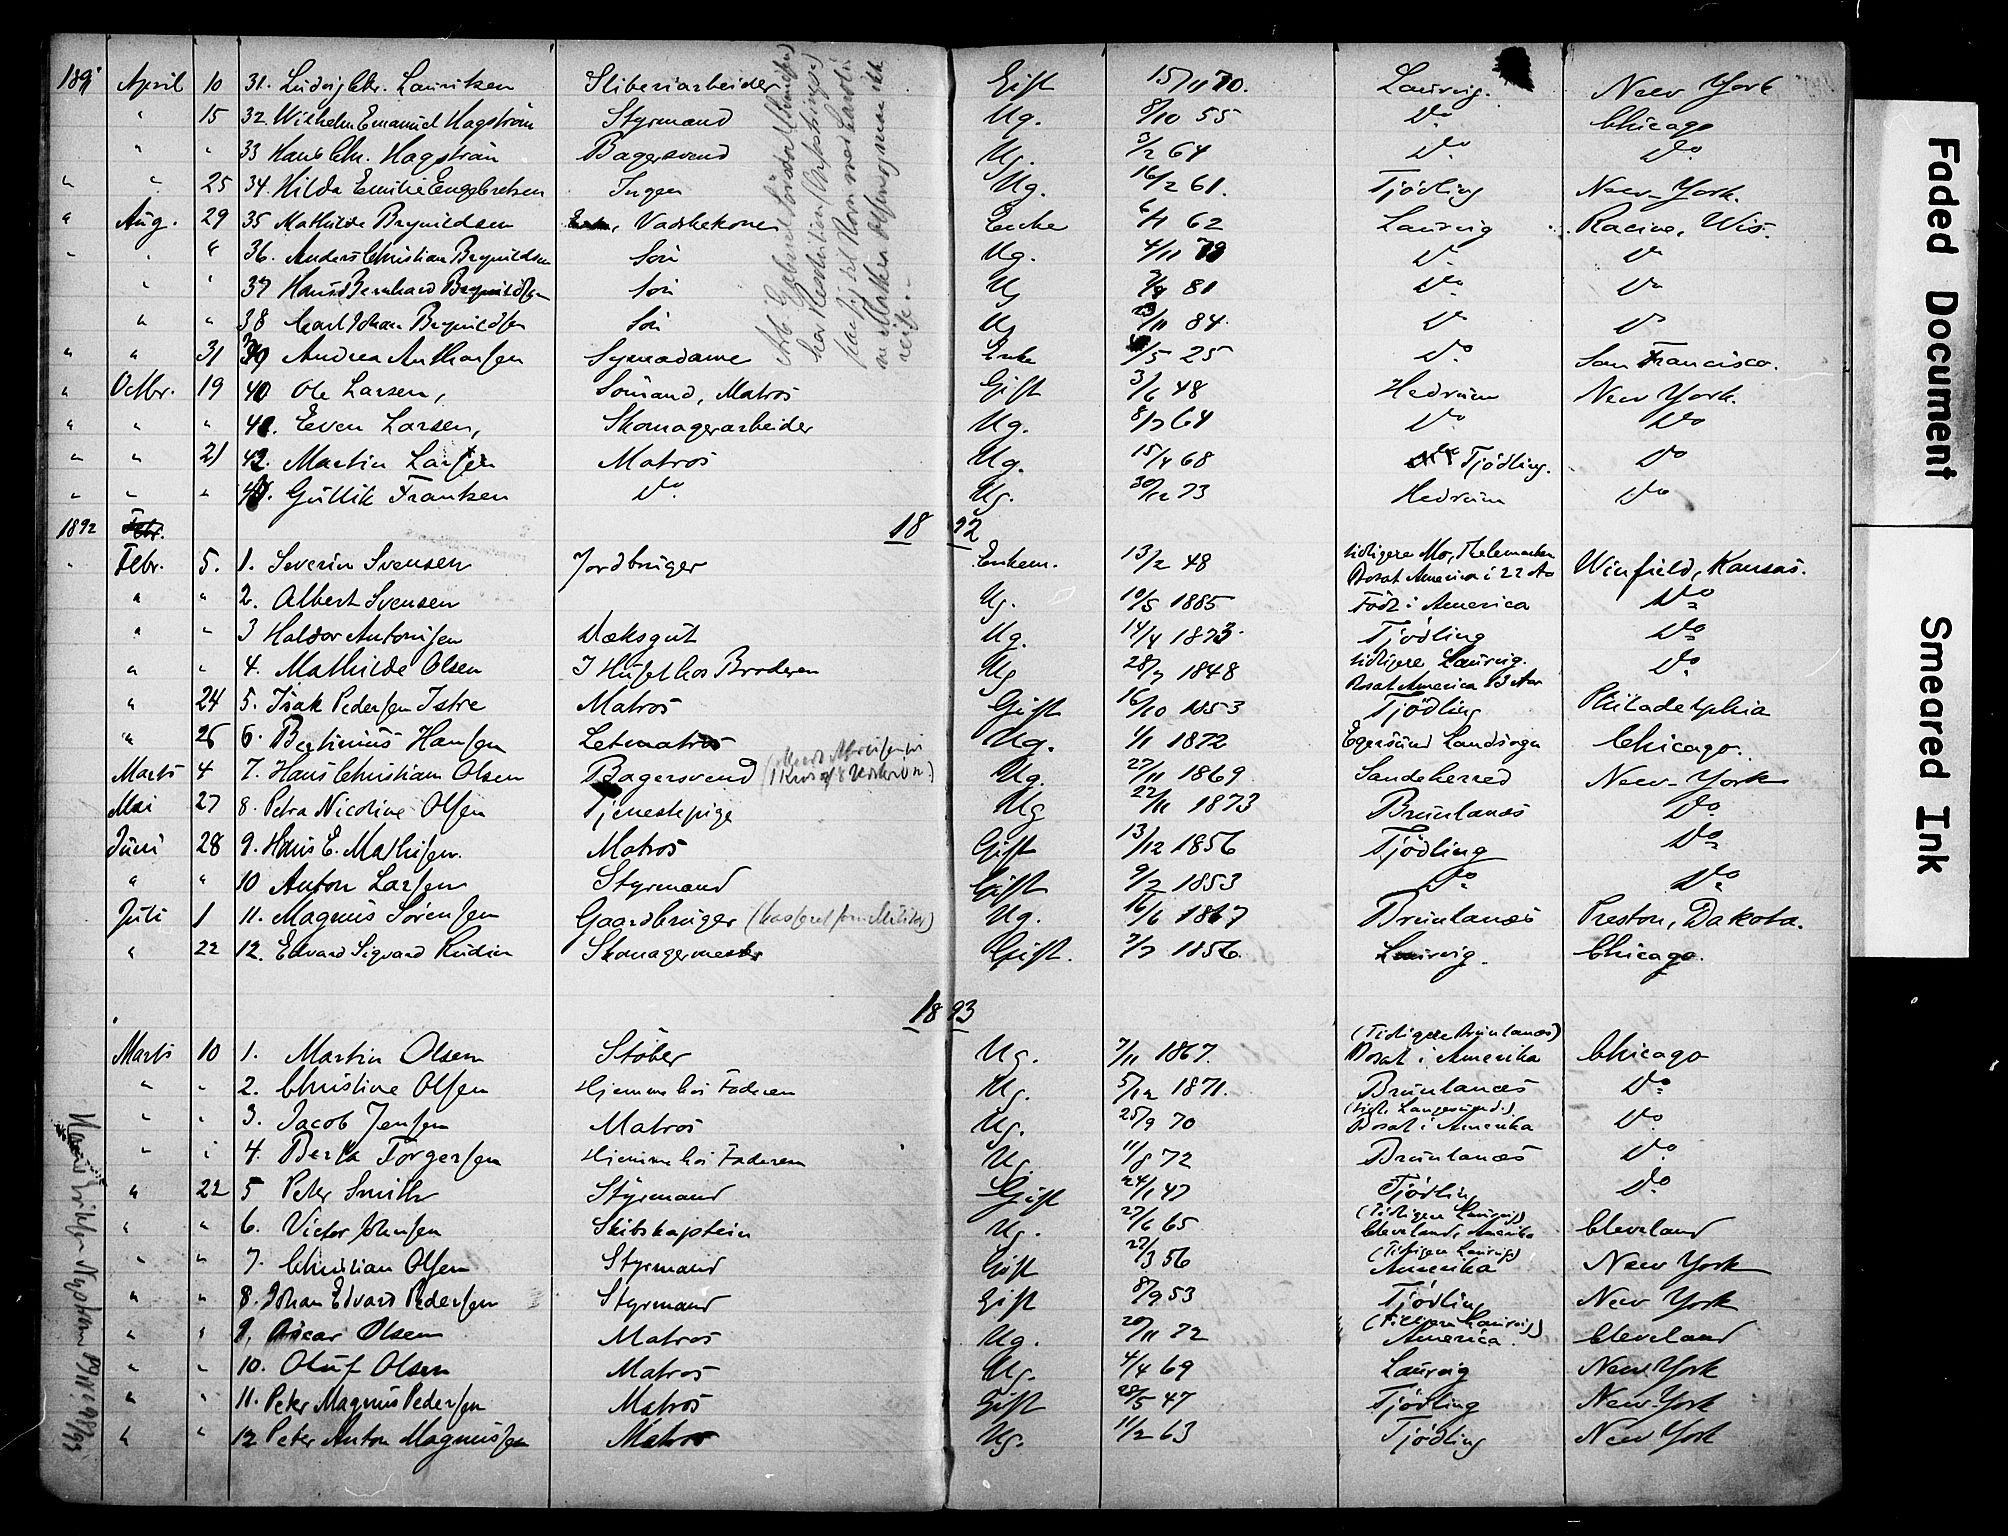 1891 April 10 31. Ludvig Chr. Lauritzen Sliberiarbeider Gift 15/11 70. Laurvig. New York
" 15 32. Wilhelm Emanuel Hagstrøm Styrmand Ug. 8/10 55 Do Chicago
" " 33 Hans Chr. Hagstrøm Bagersvend Ug. 3/2 64 Do. Do.
" " 25 34. Hilda Emilie Engebretsen Ingen Ug. 16/2 61. Tjödling New-York.
" Aug. 29 35 Mathilde Brynildsen Vadskekone Enke 62 Laurvig Racine, Wis.
" " " 36. Anders Christian Brynildsen Sön Ug. 4/11 79 Do Do
" " 37 Hans Bernhard Brynildsen Sön Ug 81 Do Do
" " 38 Carl Johan Brynildsen Sön Ug 23/11 84. Do Do
" " 31 39 Andrea Anthonsen Symadame Enke /5 25 Do. San Francisco.
" Octbr. 19 40 Ole Larsen, Sömand, Matros Gift 3/6 48 Hedrum New York.
" " " 41. Even Larsen, Skomagerarbeider Ug. 8/7 64 Do. Do
" " 21 42. Martin Larsen Matros Ug. 15/4 68 Tjödling. Do
" " " 43. Gullik Frantzen Do. Ug. 30/12 73 Hedrum Do
1892 Febr. 1892
" Febr. 5. 1. Severin Svensen Jordbruger Enkem. 13/2 48 tidligere Mo, Thelemarken Bosat America i 22 Aar Winfield, Kansas.
" " 2. Albert Svensen Ug. 10/5 1885 Född i America Do
" " 3 Haldor Antonisen Væksgut Ug. 14/4 1873. Tjödling Do
" " 4. Mathilde Olsen I Huset hos Broderen Ug 28/7 1848 tidligere Laurvig. Bosat America 13 Aar Do
" 24 5. Isak Pedersen Istre Matros Gift 16/10 1853 Tjödling Philadelphia
" 26 6. Bertinius Hansen Letmatros Ug. 1/1 1872 Egersund Landsogn Chicago.
Marts 4 7. Hans Christian Olsen Bagersvend Ug. 27/11 1869. Sandeherred New-York
Mai 27 8. Petra Nicoline Olsen Tjenestepige Ug 22/11 1873 Brunlanæs Do.
Juni 28 9. Hans E. Mathisen. Matros Gift 13/12 1856 Tjödling Do
" " 10 Anton Larsen Styrmand Gift 9/2 1853 Do. Do
Juli 1 11. Magnus Sörensen Gaardbruger (kasseret som Militær) Ug. 16/6 1867 Brunlanæs Preston, Dakota.
" 22 12. Edvard Sigvard Rudin Skomagermester Gift. 7/7 1856. Laurvig. Chicago.
1893
Marts 10 1. Martin Olsen Stöber Ug. 7/11 1867. (Tidligere Brunlanæs) Bosat i Amerika Chicago
" " 2. Christine Olsen Hjemme hos Faderen Ug. 5/12 1871. Brunlanæs Do
" " 3. Jacob Jensen Matros Ug. 25/9 70 (tidl. Langesund.) Bosat i Amerika Do
" " 4. Berta Torgersen Hjemme hos Faderen Ug. 11/8 72 Brunlanæs Do.
" 22 5 Peter Smith Styrmand Gift 24/1 47 Tjödling Do
" " 6. Victor Skibskaptein Ug. 27/6 65 (Tidligere Laurvig) Cleveland, Amerika Cleveland
" " 7. Christian Olsen Styrmand Gift 27/3 56 (Tidligere Laurvig) Amerika New York
" " 8. Johan Edvard Pedersen Styrmand Gift 8/9 53 Tjödling New York
" " 9. Oscar Olsen Matros Ug. 20/11 72 (Tidligere Laurvig) America. Cleveland
" " 10. Oluf Olsen Matros Ug. 4/4 69 Laurvig New York
" " 11. Peter Magnus Pedersen Matros Gift 28/5 47 Tjödling New York
" " 12 Peter Anton Magnussen Matros Ug. 11/2 63 Tjödling New York
Faded Document
Smeared Ink